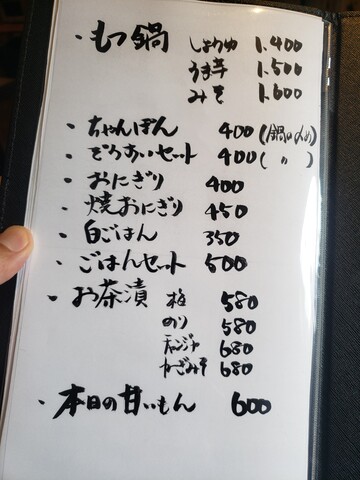 ・もつ鍋 しょうゆ 1.400
うま辛 1.500
みそ 1.600
・ちゃんぽん 400(鍋の〆め)
・ぞうすいセット 400(〃)
・おにぎり 400
・焼おにぎり 450
・白ごはん 350
・ごはんセット 500
・お茶漬 梅 580
のり 580
チャンジャ 680
わさみそ 680
・本日の甘いもん 600